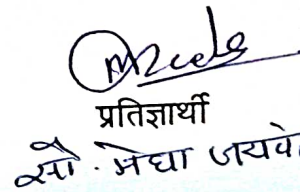 प्रतिज्ञार्थी
सौ. मेघा जयवे